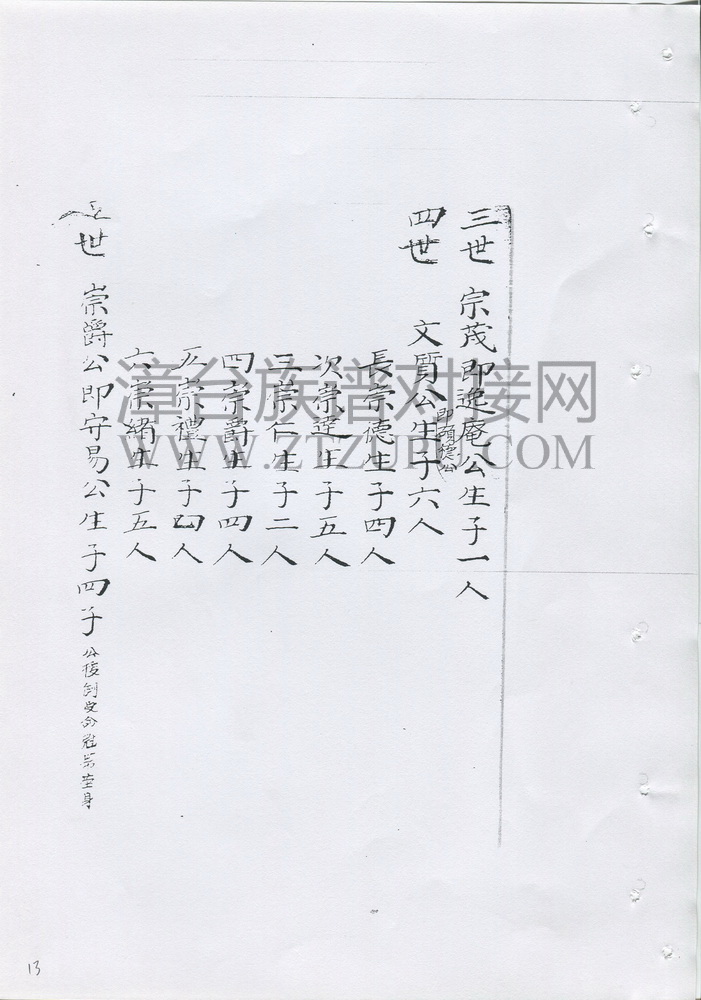 三世 宗茂即逸庵公生子一人
四世 文質公生子六人
即碩德公
長崇德生子四人
次崇逹生子五人
三崇仁生子二人
四崇爵生子四人
五崇禮生子四人
六崇緒生子五人
五世 崇爵公即守易公生子四子
漳台族谱对接网
WWW.ZTZUPU.COM
13